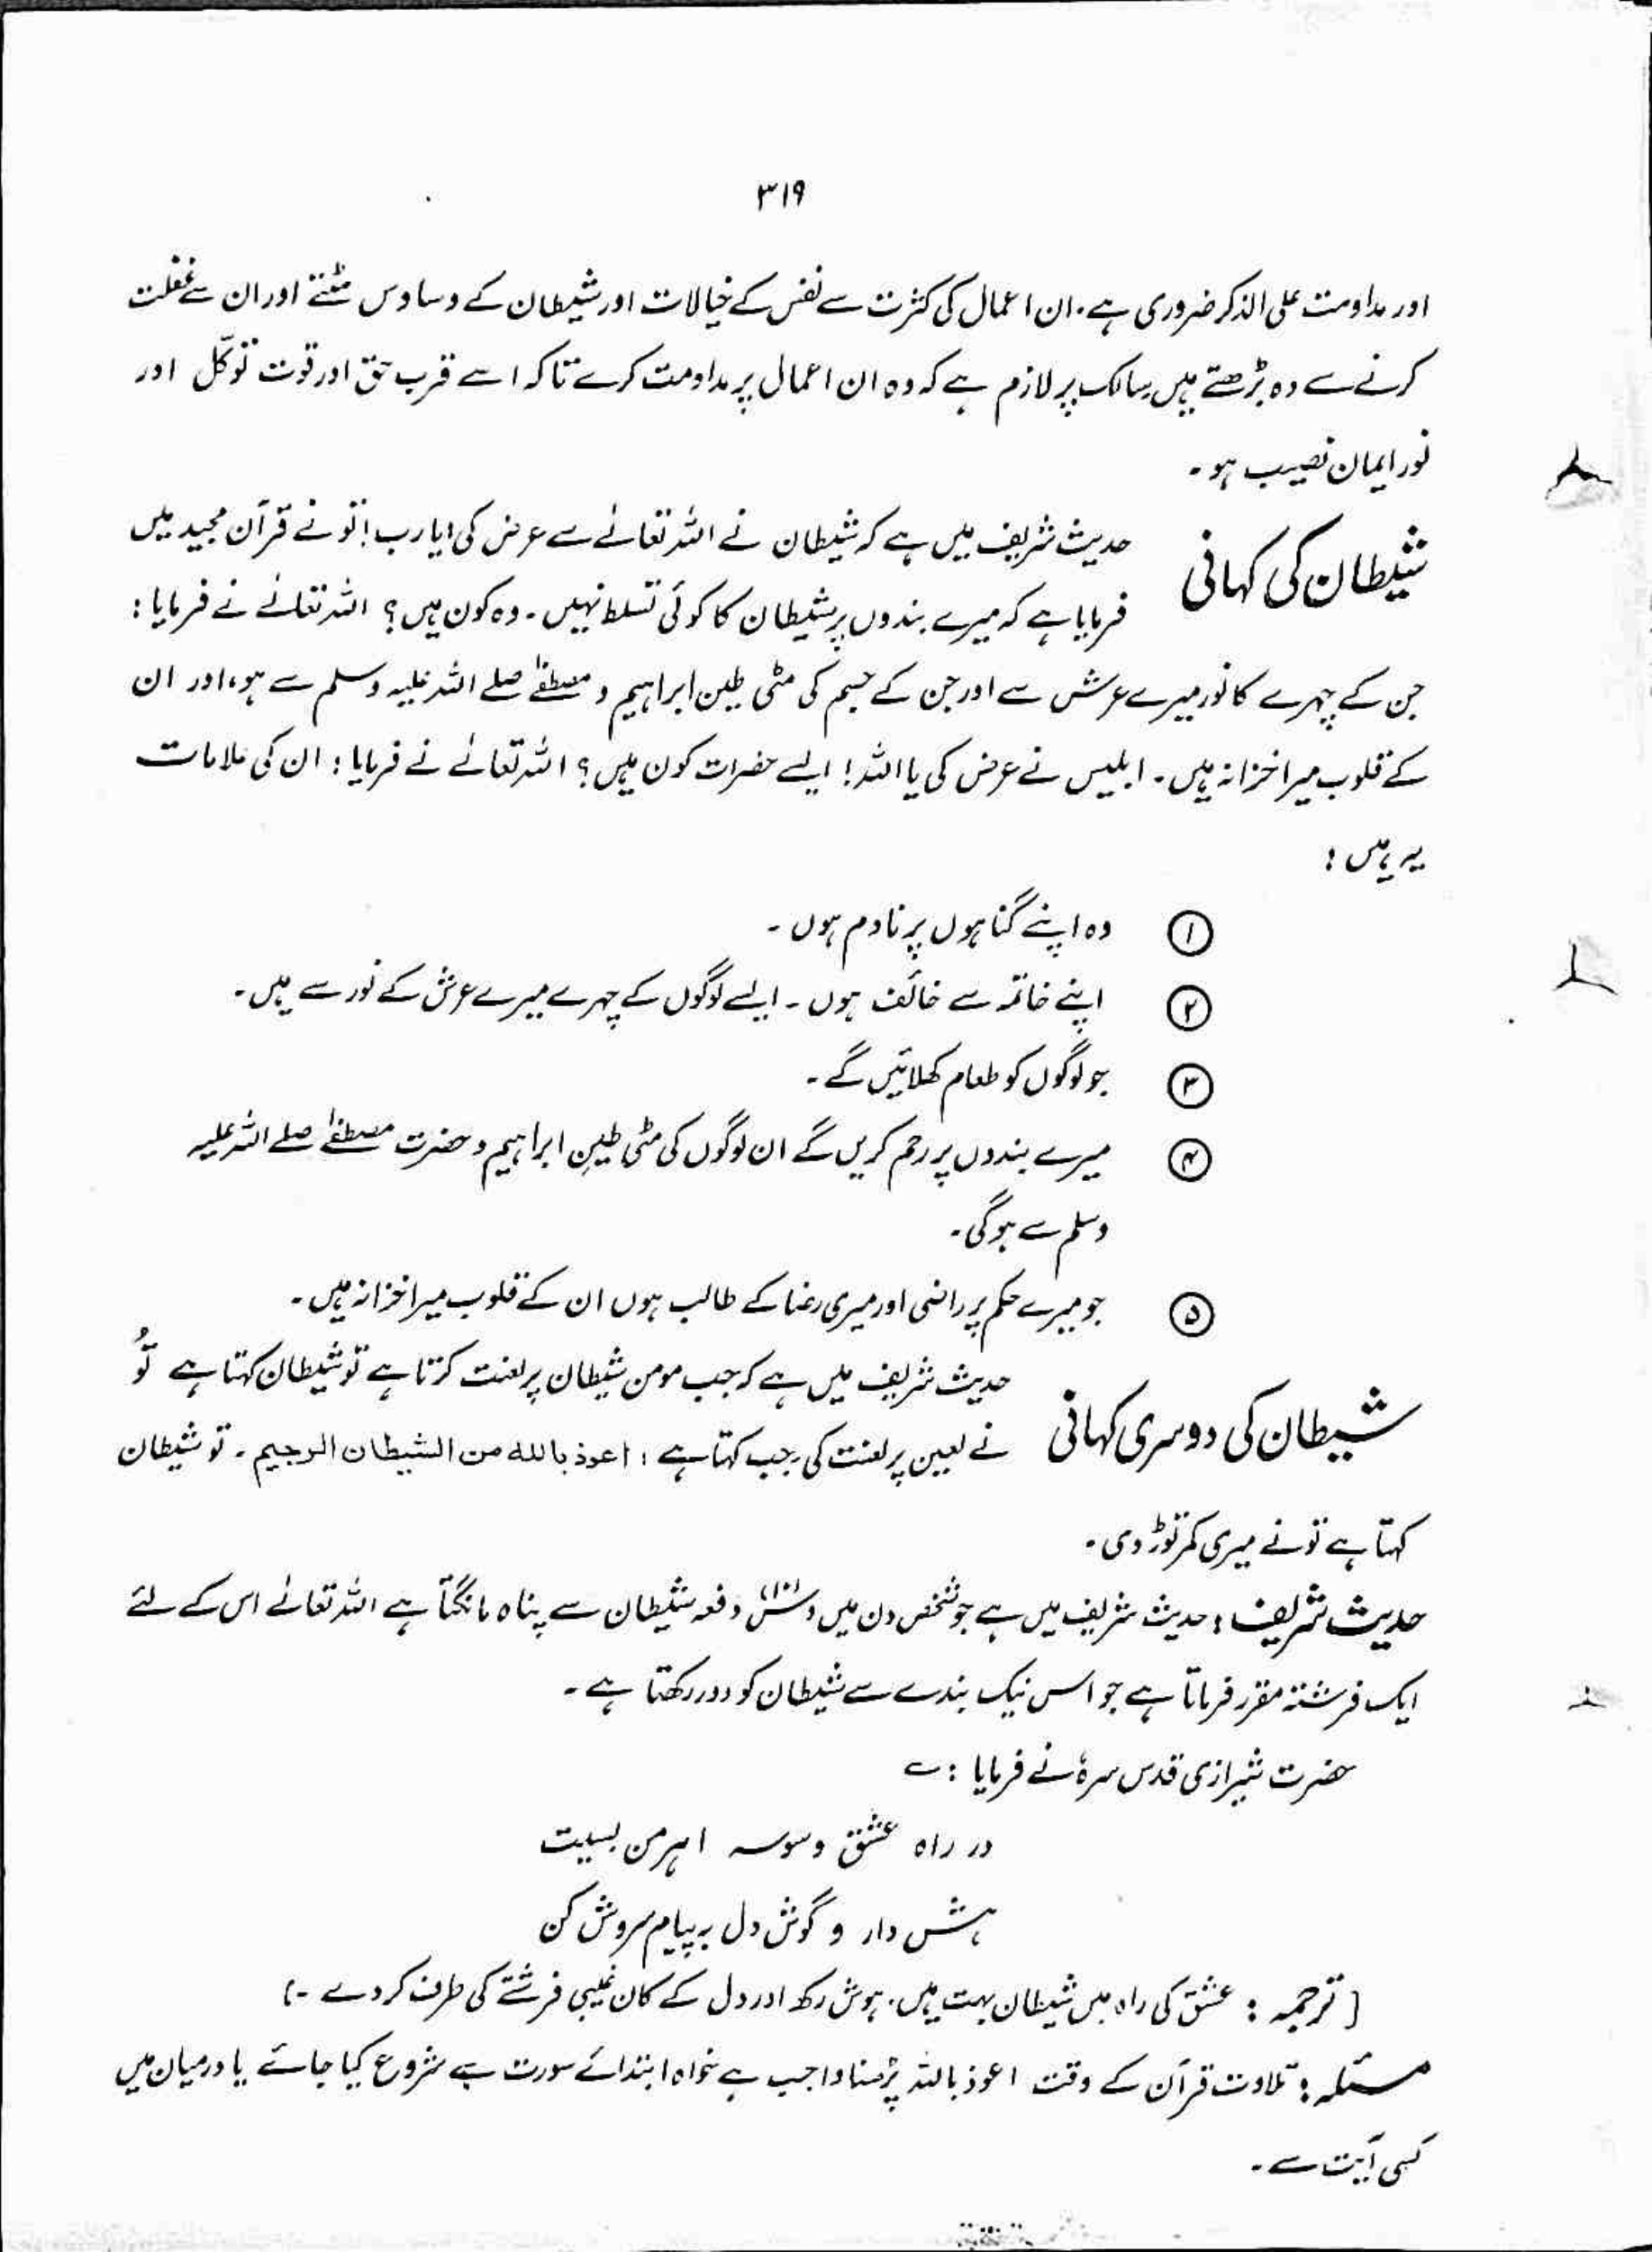 ۳۱۹
اور مداومت علی الذکر ضروری ہے۔ ان اعمال کی کثرت سے نفس کے خیالات اور شیطان کے وساوس مٹتے اور ان سے غفلت
کرنے سے وہ بڑھتے ہیں۔ سالک پر لازم ہے کہ وہ ان اعمال پر مداومت کرے تاکہ اسے قرب حق اور قوت توکّل اور
نور ایمان نصیب ہو۔
شیطان کی کہانی
حدیث شریف میں ہے کہ شیطان نے اللہ تعالےٰ سے عرض کی: یارب! تو نے قرآن مجید میں
فرمایا ہے کہ میرے بندوں پر شیطان کا کوئی تسلط نہیں۔ وہ کون ہیں؟ اللہ تعالےٰ نے فرمایا:
جن کے چہرے کا نور میرے عرش سے اور جن کے جسم کی مٹی طین ابراہیم و مصطفےٰ صلے اللہ علیہ وسلم سے ہو، اور ان
کے قلوب میرا خزانہ ہیں۔ ابلیس نے عرض کی یا اللہ! ایسے حضرات کون ہیں؟ اللہ تعالےٰ نے فرمایا: ان کی علامات
یہ ہیں:
۱ وہ اپنے گناہوں پر نادم ہوں۔
۲ اپنے خاتمہ سے خائف ہوں۔ ایسے لوگوں کے چہرے میرے عرش کے نور سے ہیں۔
۳ جو لوگوں کو طعام کھلائیں گے۔
۴ میرے بندوں پر رحم کریں گے ان لوگوں کی مٹی طینِ ابراہیم و حضرت مصطفےٰ صلے اللہ علیہ
وسلم سے ہوگی۔
۵ جو میرے حکم پر راضی اور میری رضا کے طالب ہوں ان کے قلوب میرا خزانہ ہیں۔
شیطان کی دوسری کہانی
حدیث شریف میں ہے کہ جب مومن شیطان پر لعنت کرتا ہے تو شیطان کہتا ہے تُو
نے لعین پر لعنت کی۔ جب کہتا ہے: اعوذ باللہ من الشیطان الرجیم۔ تو شیطان
کہتا ہے تو نے میری کمر توڑ دی۔
حدیث شریف: حدیث شریف میں ہے جو شخص دن میں دس (۱۰) دفعہ شیطان سے پناہ مانگتا ہے اللہ تعالےٰ اس کے لئے
ایک فرشتہ مقرر فرماتا ہے جو اس نیک بندے سے شیطان کو دور رکھتا ہے۔
حضرت شیرازی قدس سرہٗ نے فرمایا: ؎
در راہ عشق وسوسہ اہرمن بسیت
ہش دار و گوش دل بہ پیام سروش کن
[ترجمہ: عشق کی راہ میں شیطان بہت ہیں۔ ہوش رکھ اور دل کے کان غیبی فرشتے کی طرف کر دے۔]
مسئلہ: تلاوت قرآن کے وقت اعوذ باللہ پڑھنا واجب ہے خواہ ابتدائے سورت سے شروع کیا جائے یا درمیان میں
کسی آیت سے۔